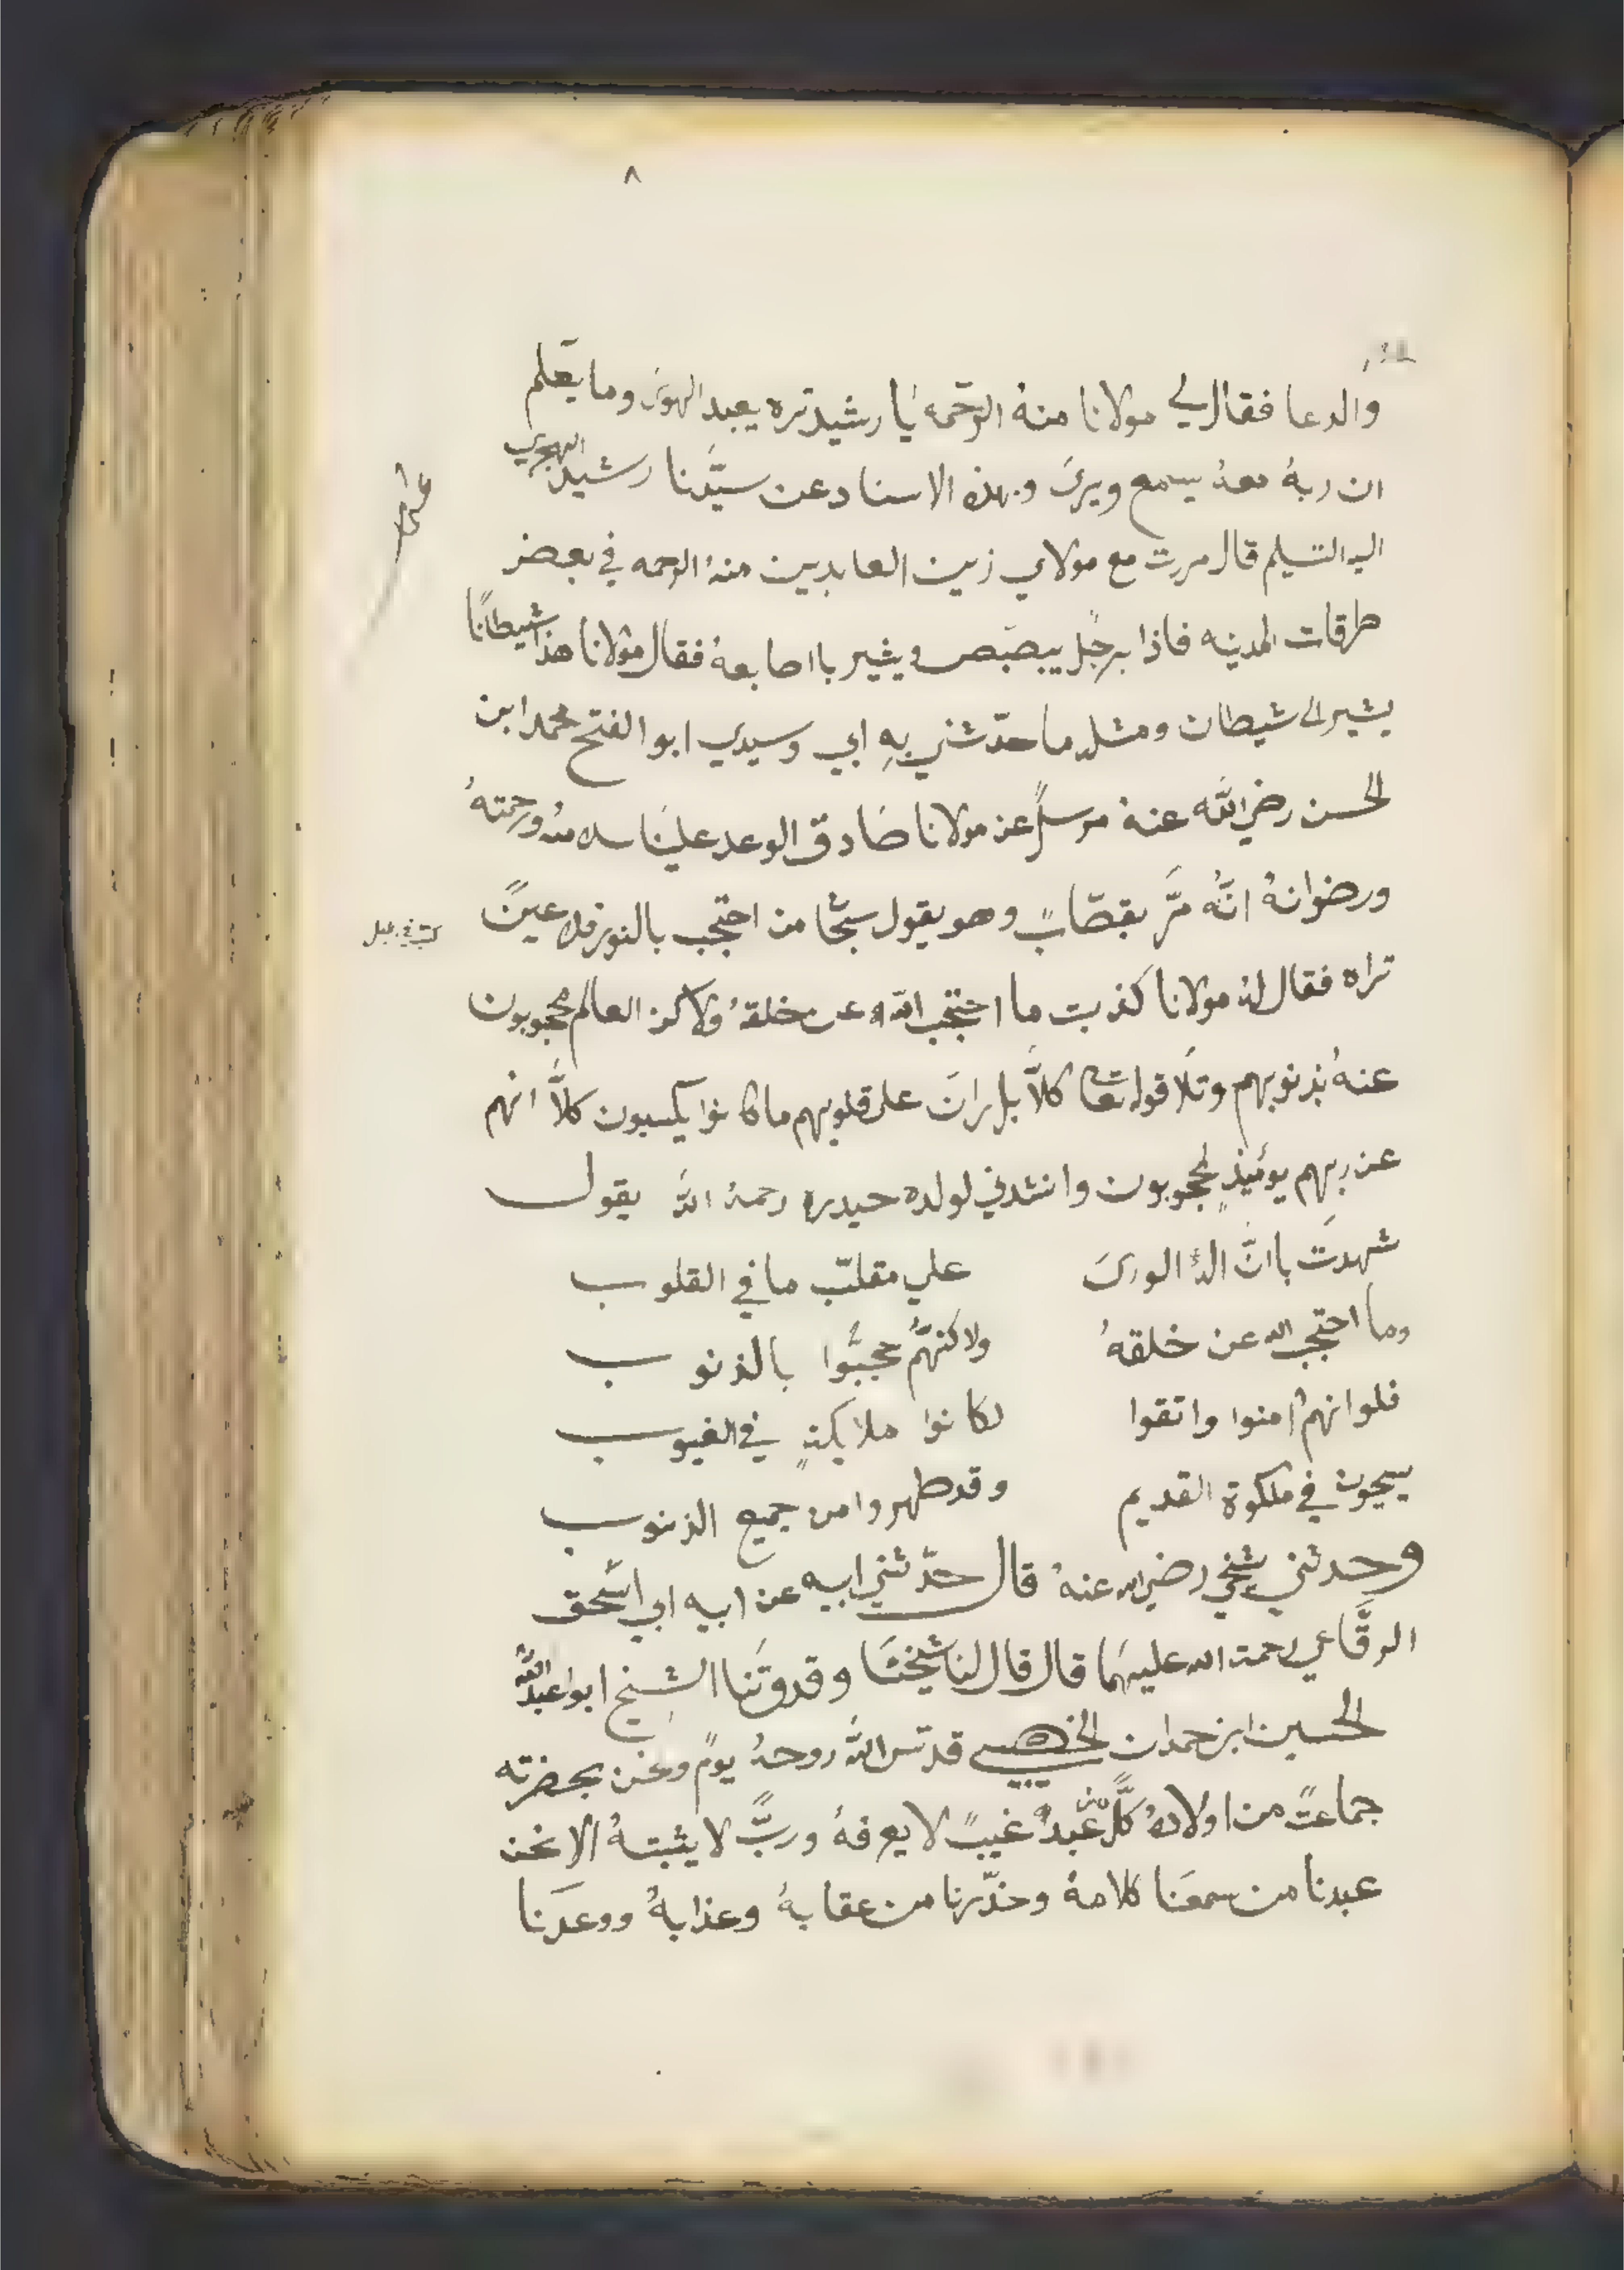 ٨
والدعا فقال لي مولانا منهُ الرّحمه يا رشيد تره يعبد الهوىَ وما يعَلم
ان ربهُ معهُ يسمع ويرىَ وبهذه الاسناد عن سيّدنا رشيد الهجري
اليه التسليم قال مرت مع مولاي زين العابدين منهُ الرحمه في بعض
طرقات المدينه فاذا برجُل يبصّبص ويشير بااصابعهُ فقال مولانا هذا شيطانًا
يشير الى شيطان ومثله ما حدّثني بهِ ابي وسيدي ابو الفتح محمد ابن
الحسن رضي اللّه عنهُ مرسلًا عن مولانا صَادق الوعد علينا سلامهُ ورحمتهُ
ورضوانهُ انَّهُ مَرَّ بقصّابٍ وهو يقول سبحَّا من احتجب بالنور فلا عينً
تراه فقال لهُ مولانا كذبت ما احتجب اللّه عن خلقهُ ولاكن العالم محجوبون
عنهُ بذنوبهم وتلَا قوله تعَا كلاَّ بل رانَ على قلوبهم ما كانوا يكسبون كلاَّ انهم
عن ربهم يومَيذٍ لمحجوبون وانشدني لولده حيدره رحمهُ اللَّه يقول
شهدتَ باانَّ الهُ الورىَ علي مقلبّ ما في القلوب
وما احتجب الله عن خلقهُ ولاكنهَّمُ حجبُّوا بالذنوب
فلوانهم امنوا واتقوا لكانوا ملايكةٍ في الغيوب
يسيحون في ملكوة القديم وقد طهروا من جميع الذنوب
وحدثني شيخي رضي الله عنهُ قال حدّثني ابيه عن ابيه ابي اسّحق
الرقَّاعي رحمت الله عليهمَا قال قال لنا شيخنَا وقدوتَنا الشيخ ابوا عبد اللَّه
الحسين ابن حمدان الخصيبي قدّس اللَّه روحهُ يومً ونحن بحضرته
جماعتً من اولادهُ كلًّ من عَبدُ غيبً لا يعرفهُ وربًّ لا يثبتهُ الا نحن
عبدنا من سمعَنا كلامهُ وحذّرنا من عقابهُ وعذابهُ ووعدَنا